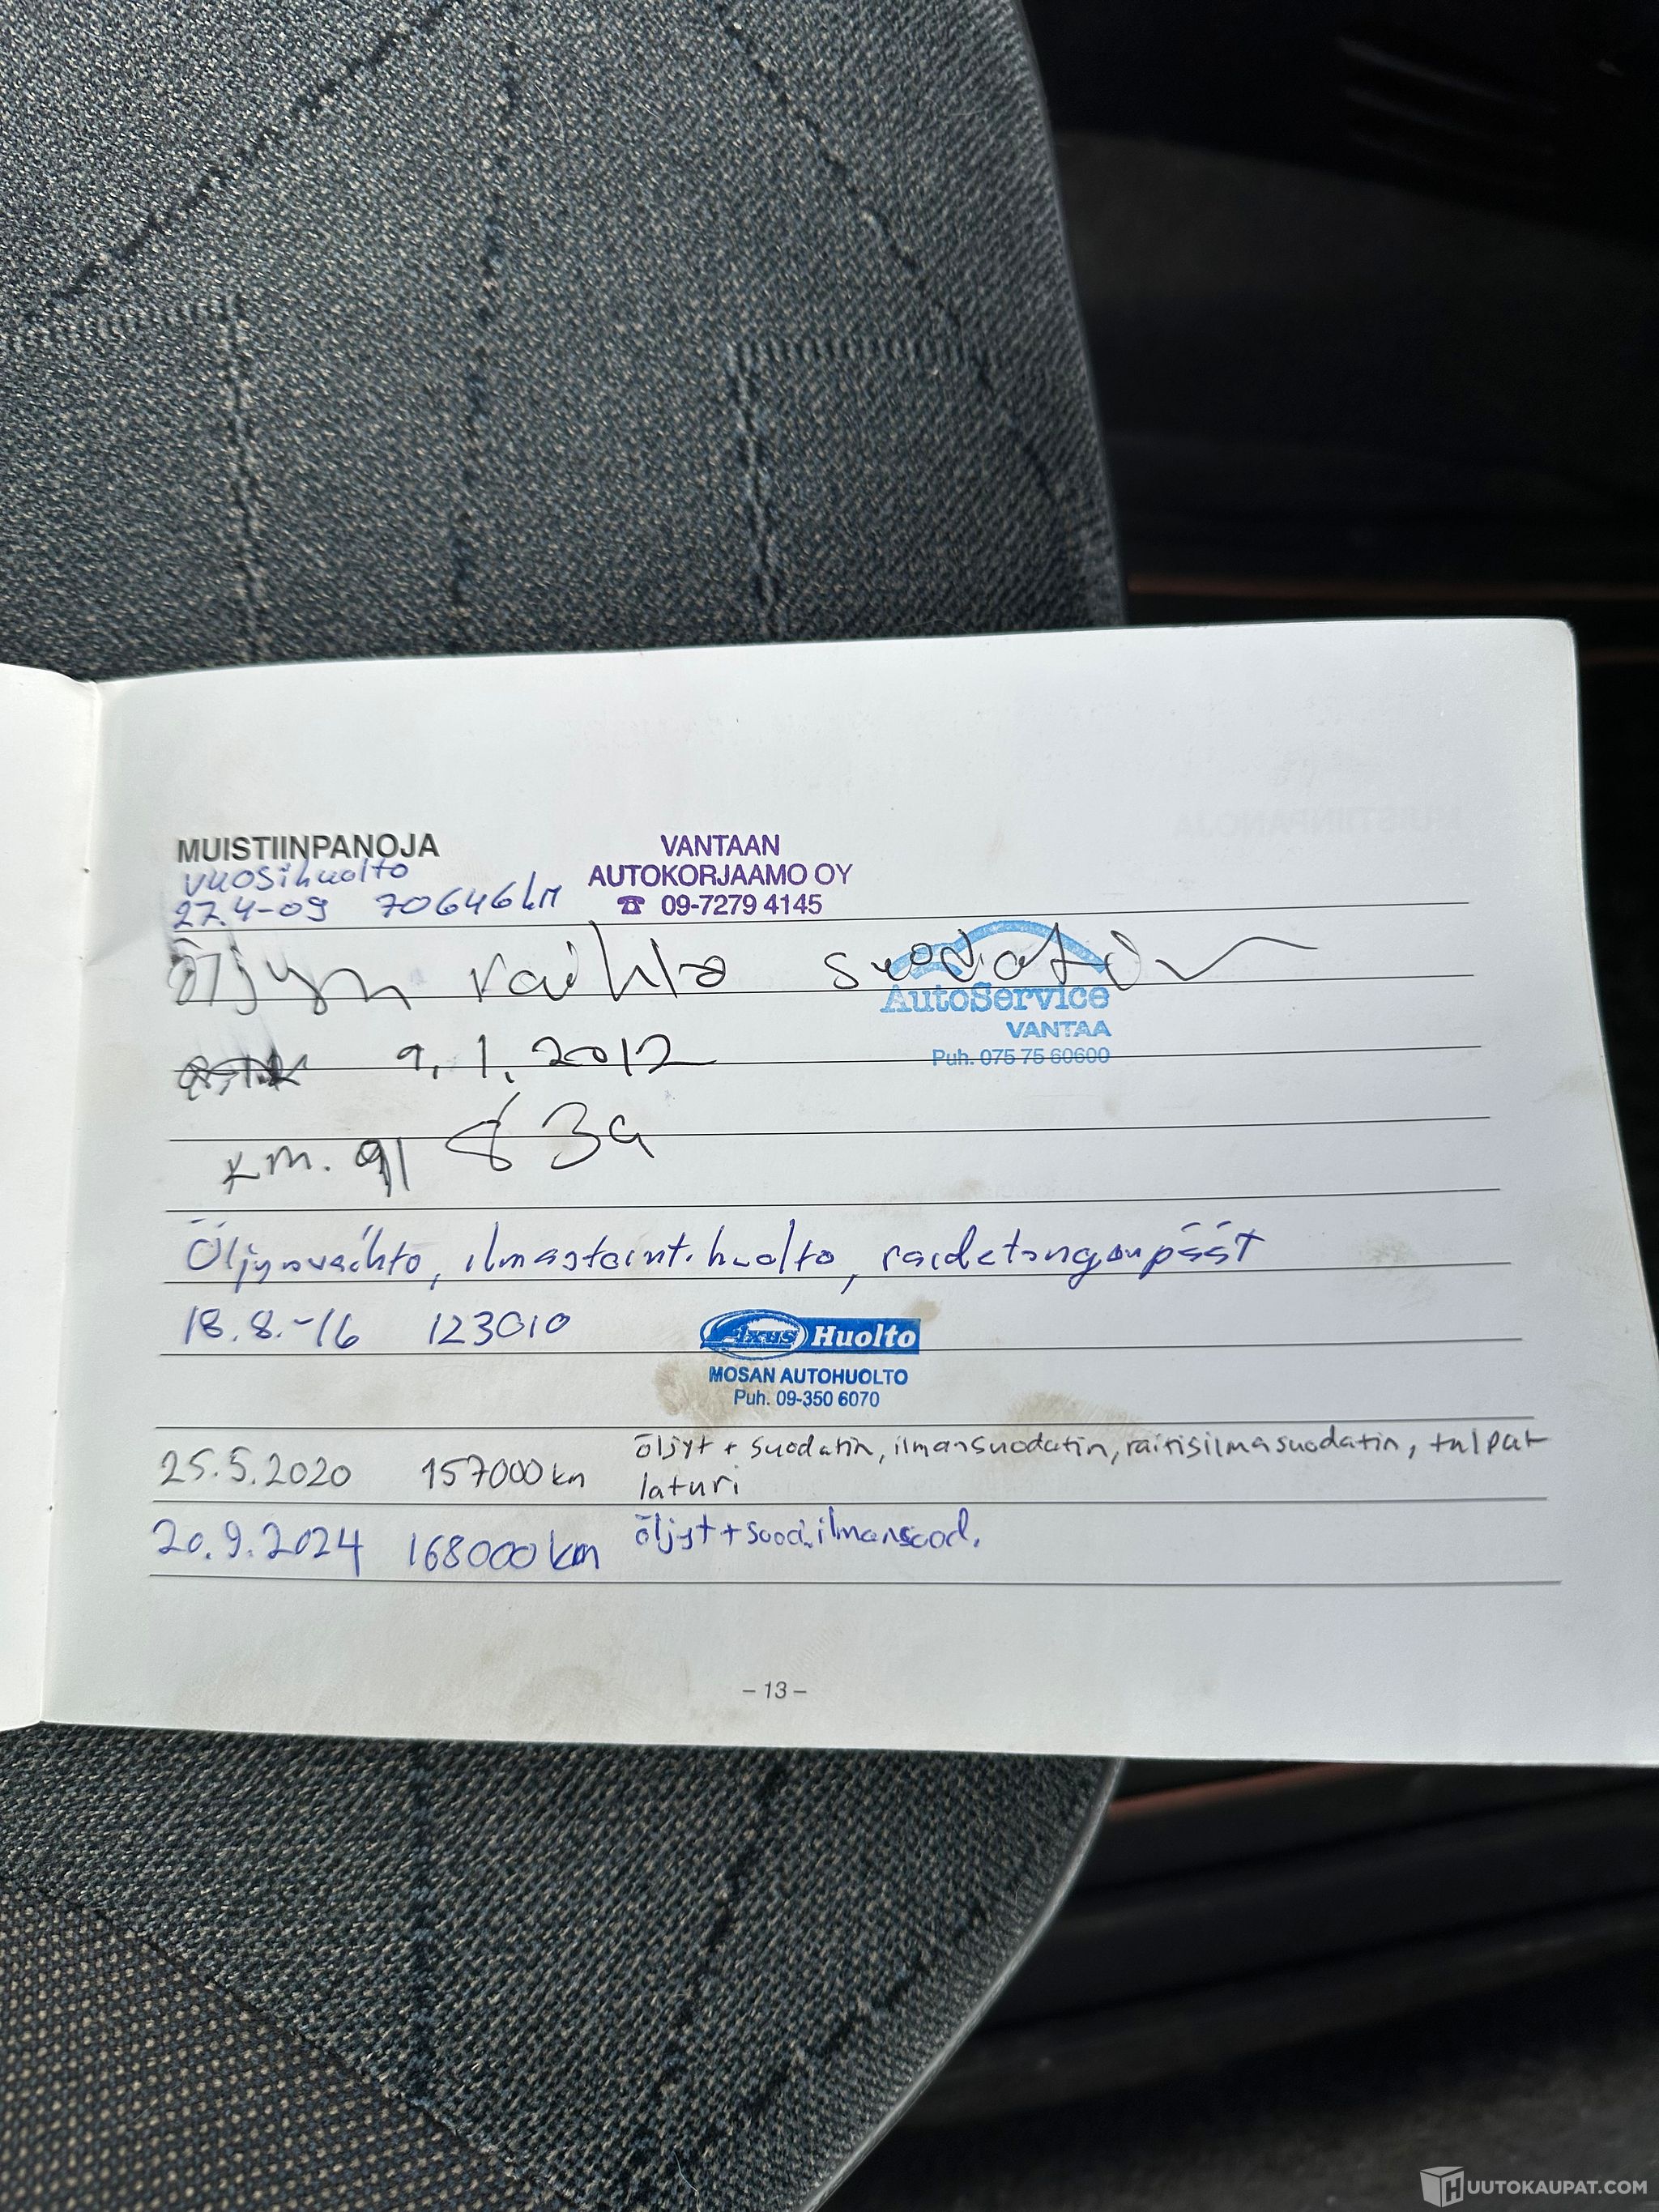 MUISTIINPANOJA
vuosihuolto
27.4-09 70646km
VANTAAN
AUTOKORJAAMO OY
☎ 09-7279 4145
Öljyn vaihto suodatin
AutoService
VANTAA
Puh. 075 75 60600
9.1.2012
km. 91 839
Öljynvaihto, ilmastoint.huolto, raidetangonpäät
18.8.-16 123010
Axus Huolto
MOSAN AUTOHUOLTO
Puh. 09-350 6070
25.5.2020 157000km öljyt + suodatin, ilmansuodatin, raitisilmasuodatin, tulpat
laturi
20.9.2024 168000km öljyt+suod. ilmansuod.
– 13 –
HUUTOKAUPAT.COM